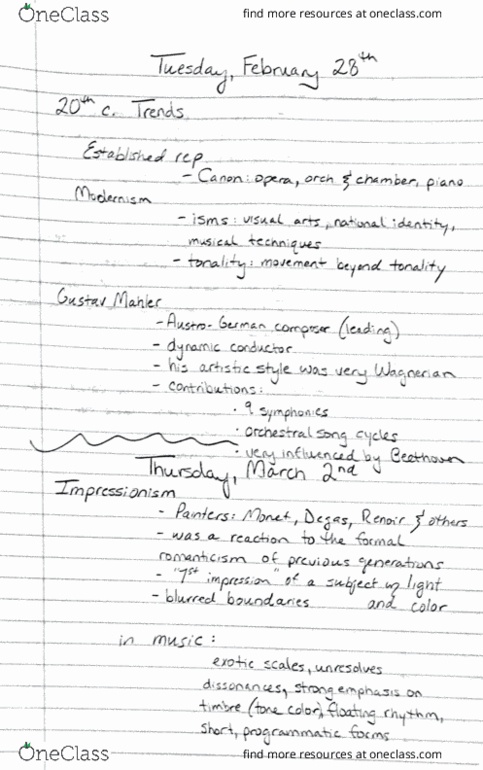 OneClass
find more resources at oneclass.com
Tuesday, February 28th
20th c. Trends
Established rep
- Canon: opera, orch & chamber, piano
Modernism
- isms: visual arts, national identity,
musical techniques
- tonality: movement beyond tonality
Gustav Mahler
- Austro-German composer (leading)
- dynamic conductor
- his artistic style was very Wagnerian
- contributions:
· 9 symphonies
· orchestral song cycles
· very influenced by Beethoven
Thursday, March 2nd
Impressionism
- Painters: Monet, Degas, Renoir & others
- was a reaction to the formal
romanticism of previous generations
- "1st impression" of a subject w/ light
- blurred boundaries and color
in music:
exotic scales, unresolves
dissonances, strong emphasis on
timbre (tone color), floating rhythm,
short, programmatic forms
OneClass
find more resources at oneclass.com